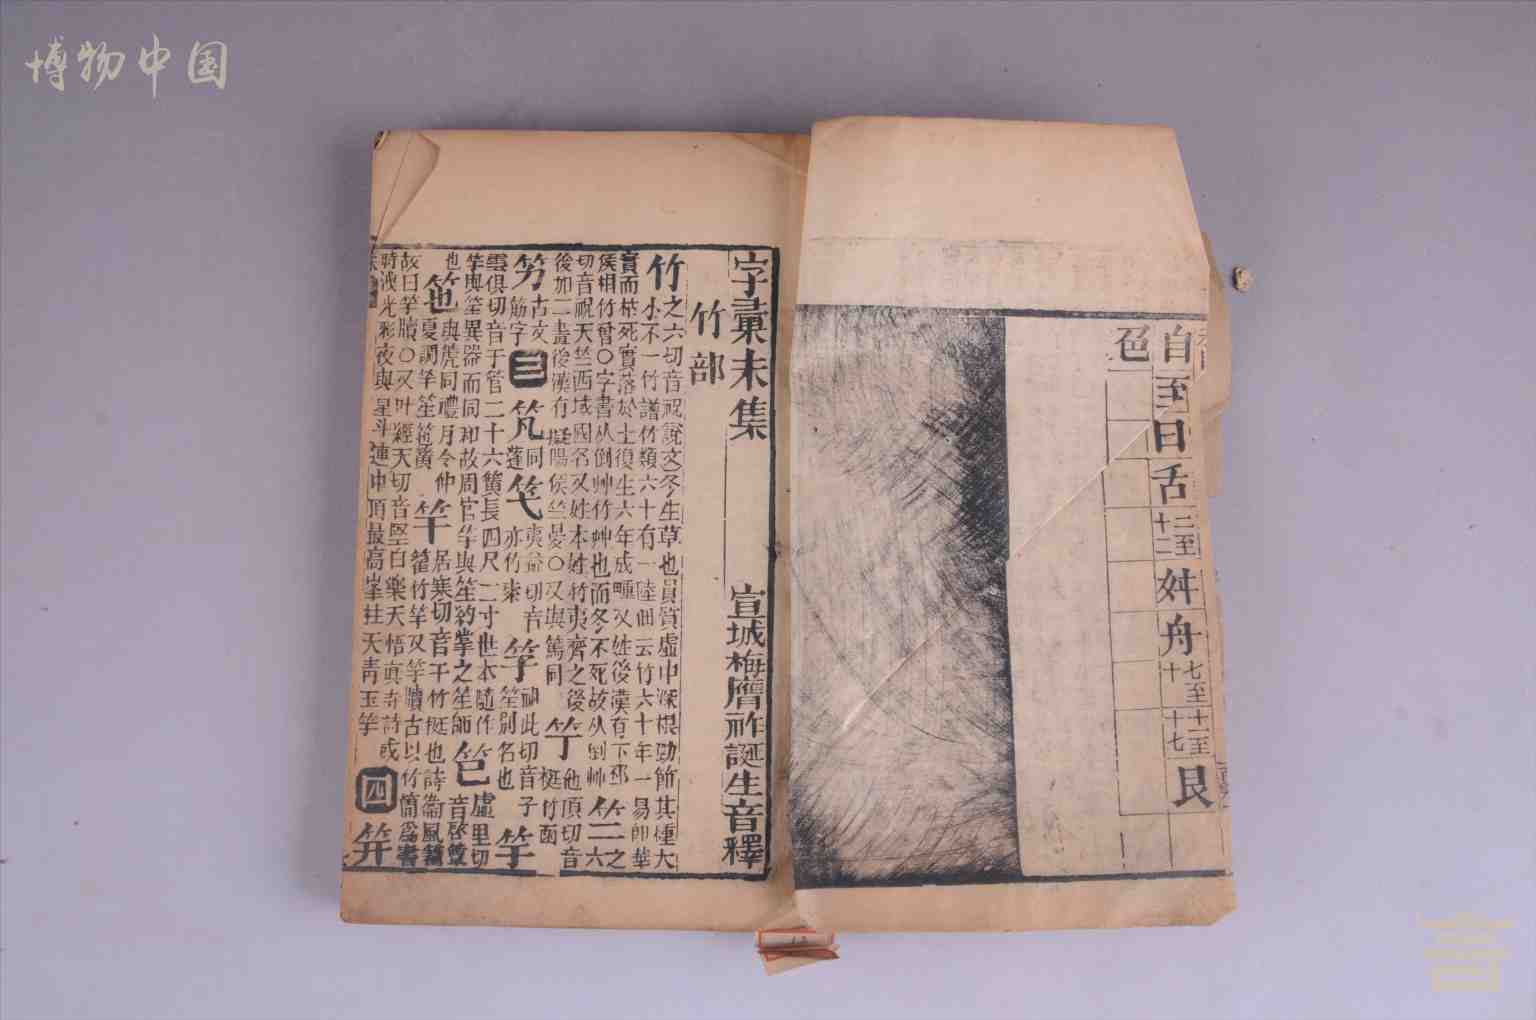 博物中国
自至臼舌二至十二舛舟七至十十一至十七艮
色
字彙未集
宣城梅膺祚誕生音釋
竹部
竹之六切音祝說文冬生草也員質虛中深根勁節其種大
小不一竹譜竹類六十有一陸佃云竹六十年一易卽華
實而枯死實落於土復生六年成畽又姓後漢有下邳
侯相竹曾〇字書从倒艸竹艸也而冬不死故从倒艸竺二六之
切音祝天竺西域國名又姓本姓竹夷齊之後
後加二畫後漢有擬陽侯竺晏〇又與篤同竹丁他頂切音挺竹函
竻古文筋字三竼同蓬笂夷益切音亦竹朿竽祖此切音子笙別名也竽
雲俱切音于管二十六簧長四尺二寸世本隨作
竽與笙異器而同和故周官竽與笙均掌之笙師笆虛里切音啓簧
也竾與篪同禮月令仲夏調竽笙竾簧竿居寒切音干竹梃也詩衞風籊籊竹竿又竿牘古以竹簡爲書
故曰竿牘〇又叶經天切音堅白樂天悟眞寺詩或
時洩光彩夜與星斗連中頂最高峯拄天靑玉竿四笄